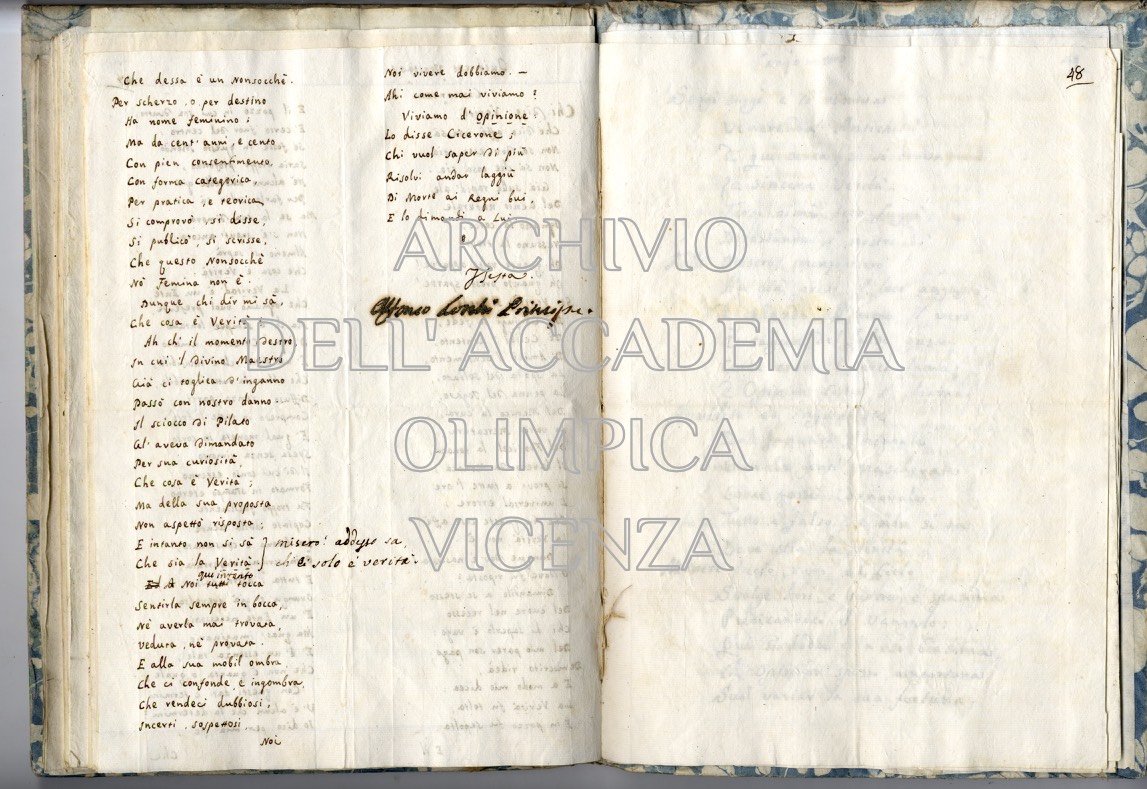 Che dessa è un Nonsocchè.
Per scherzo, o per destino
Ha nome feminino;
Ma da cent' anni, e cento
Con pien consentimento,
Con forma categorica,
Per pratica, e teorica
Si comprovò, si disse,
Si publicò, si scrisse,
Che questo Nonsocchè
Nò Femina non è.
Dunque chi dir mi sà,
Che cosa è Verità?
Ah ch' il momento destro
In cui il Divino Maestro
Già ci toglica d'inganno
Passò con nostro danno.
Il sciocco di Pilato
Gl' aveva dimandato
Per sua curiosità,
Che cosa è Verità;
Ma della sua proposta
Non aspettò risposta;
E intanto non si sà
Che sia la Verità
misero! adesso sa
ch' Ei solo è verità.
qui intento
A Noi tutti tocca
Sentirla sempre in bocca,
Nè averla mai trovata
Veduta, nè provata.
E alla sua mobil ombra,
Che ci confonde, e ingombra,
Che rendeci dubbiosi,
Incerti, sospettosi
Noi
Noi vivere dobbiamo. –
Ahi come mai viviamo?
Viviamo d' Opinione:
Lo disse Cicerone;
Chi vuol saper di più
Risolvi andar laggiù
Di Morte ai Regni bui,
E lo dimandi a Lui.
Alfonso Principe.
48
ARCHIVIO
DELL'ACCADEMIA
OLIMPICA
VICENZA